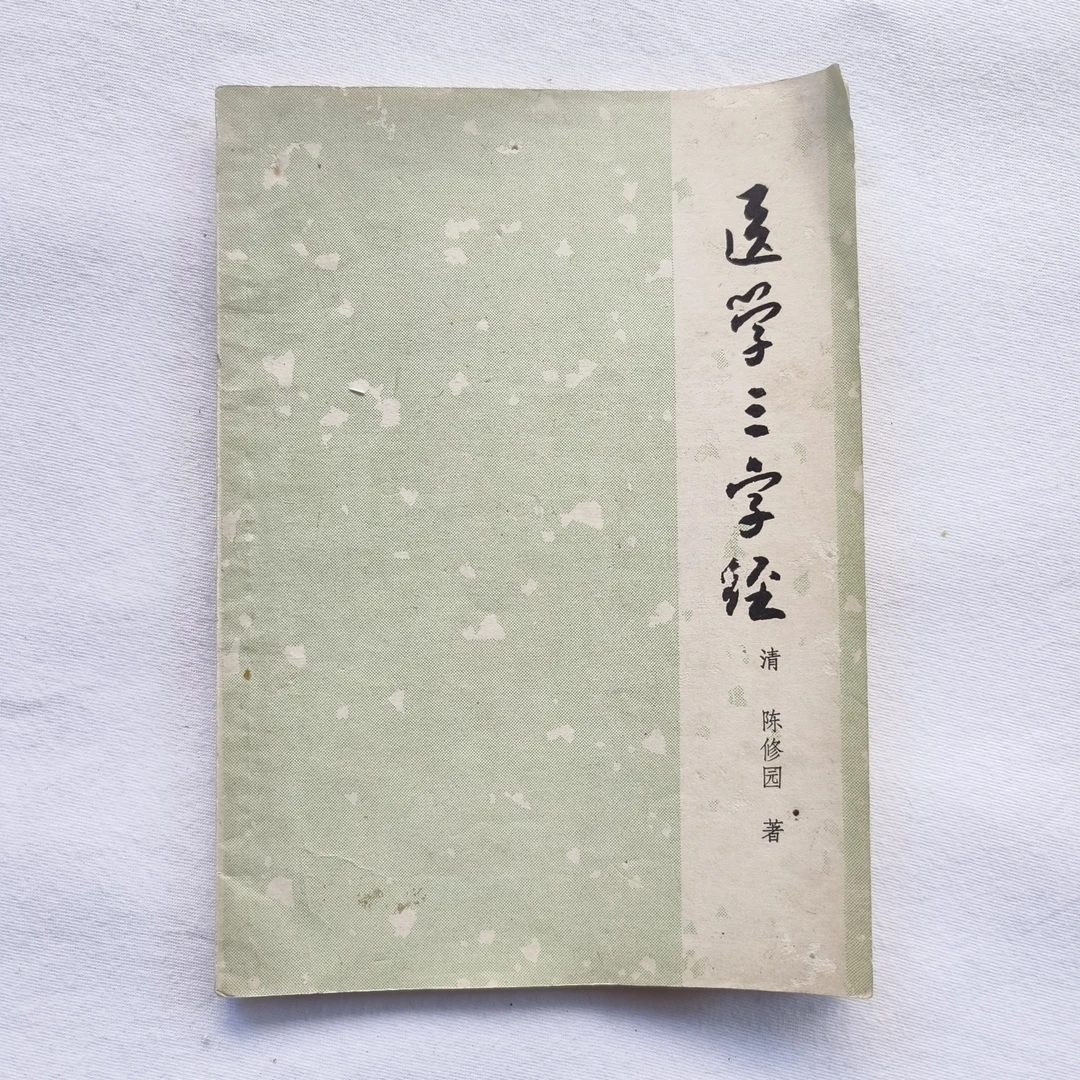 医学三字经
清 陈修园 著